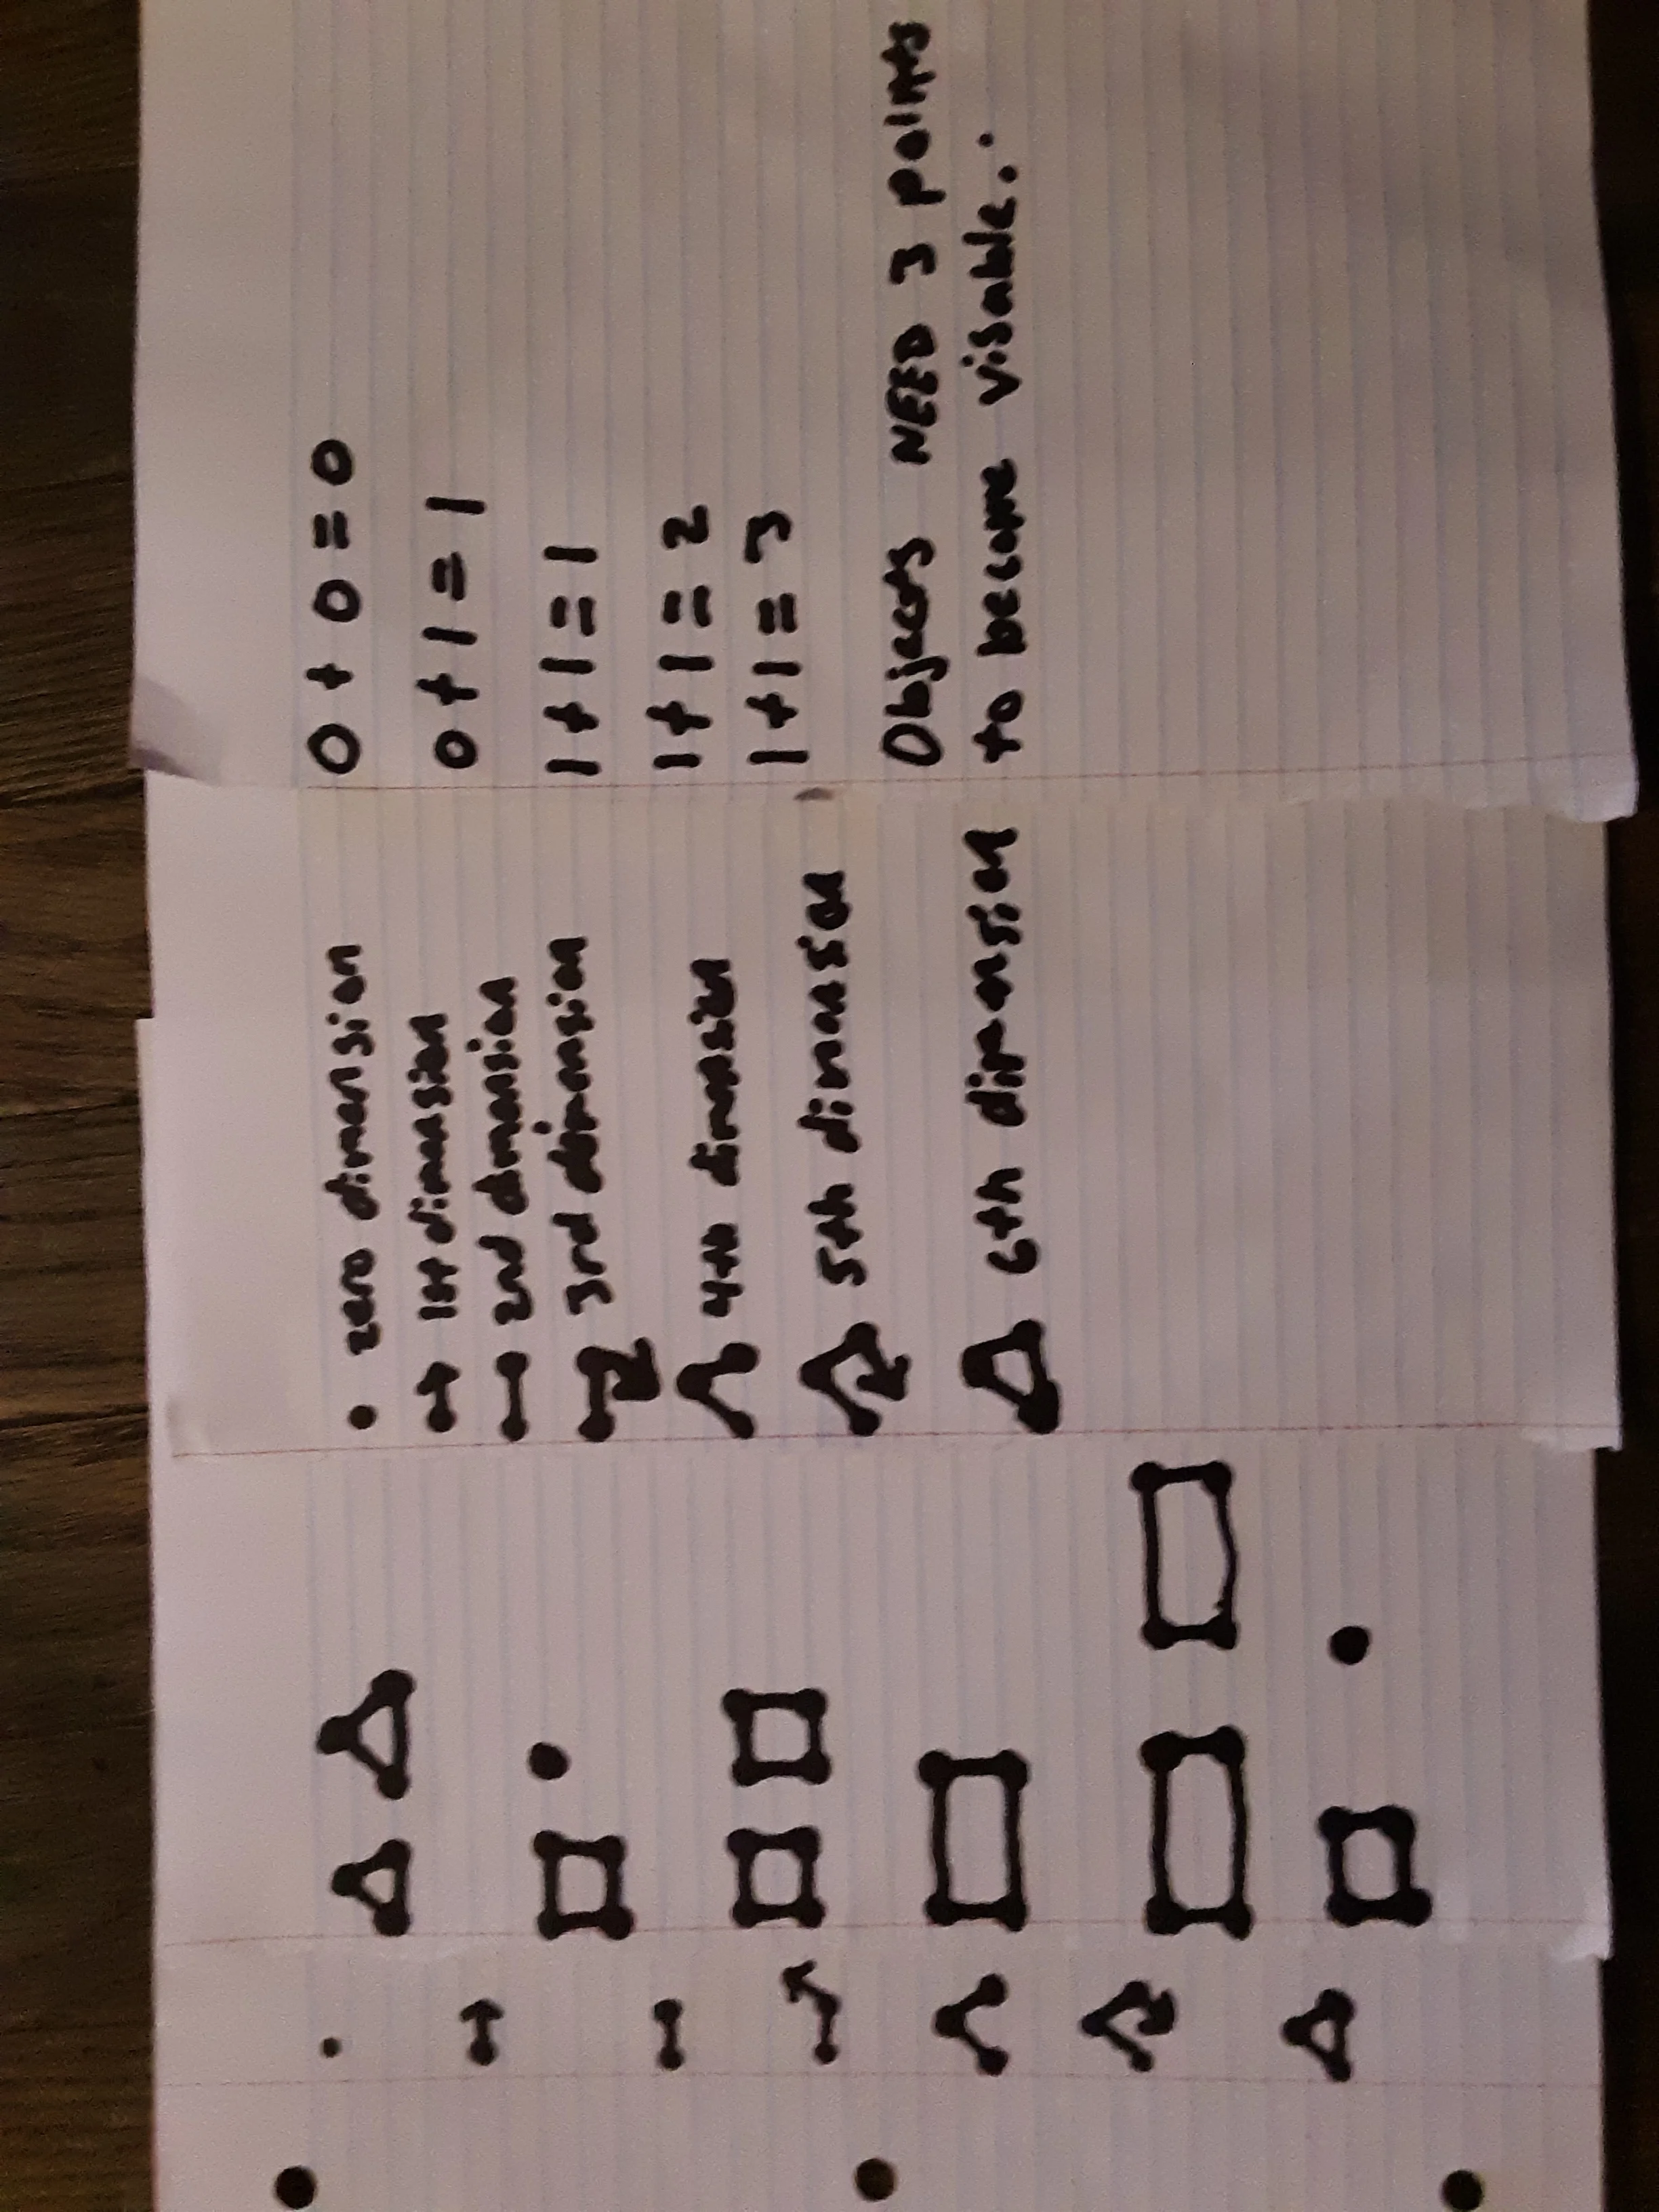 zero dimension
1st dimension
2nd dimension
3rd dimension
4th dimension
5th dimension
6th dimension
0 + 0 = 0
0 + 1 = 1
1 + 1 = 1
1 + 1 = 2
1 + 1 = 3
Objects NEED 3 points
to become visable..